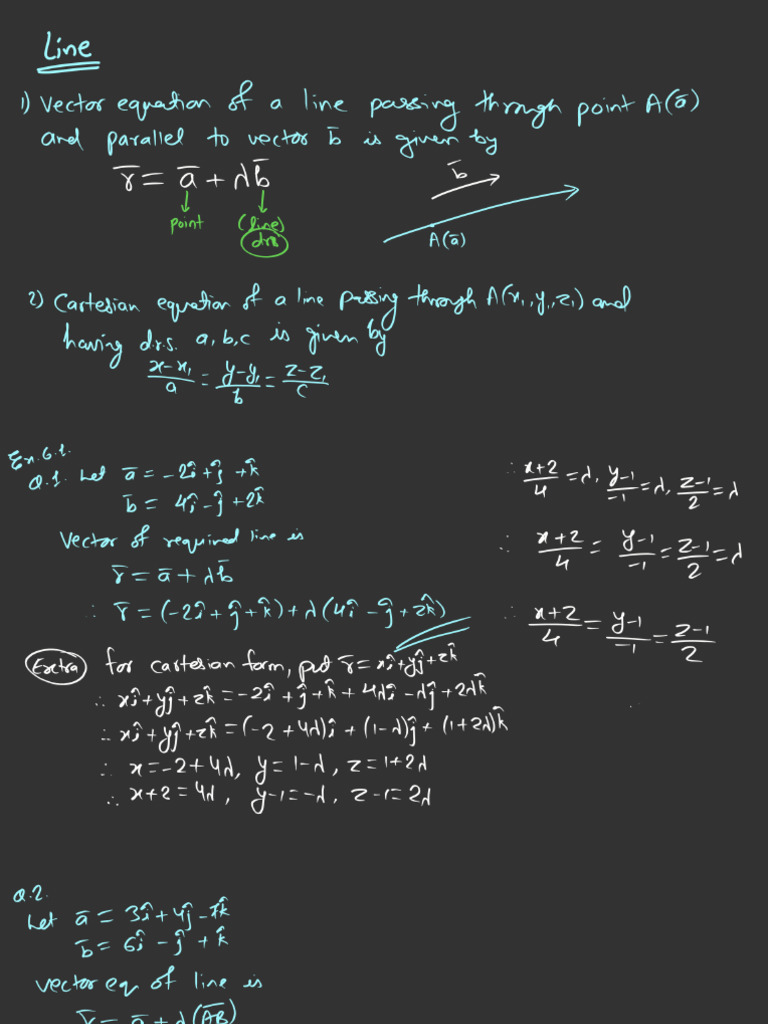 Line
1) Vector equation of a line passing through point A(a̅)
and parallel to vector b̅ is given by
r̅ = a̅ + λb̅
point
(line)
drs
b̅
A(a̅)
2) Cartesian equation of a line passing through A(x₁, y₁, z₁) and
having d.r.s. a, b, c is given by
(x-x₁)/a = (y-y₁)/b = (z-z₁)/c
Ex. 6.1.
Q.1. Let a̅ = -2î + ĵ + k̂
b̅ = 4î - ĵ + 2k̂
Vector of required line is
r̅ = a̅ + λb̅
∴ r̅ = (-2î + ĵ + k̂) + λ(4î - ĵ + 2k̂)
Extra
for cartesian form, put r̅ = xî + yĵ + zk̂
∴ xî + yĵ + zk̂ = -2î + ĵ + k̂ + 4λî - λĵ + 2λk̂
∴ xî + yĵ + zk̂ = (-2 + 4λ)î + (1-λ)ĵ + (1+2λ)k̂
∴ x = -2 + 4λ, y = 1-λ, z = 1+2λ
∴ x+2 = 4λ, y-1 = -λ, z-1 = 2λ
∴ (x+2)/4 = λ, (y-1)/-1 = λ, (z-1)/2 = λ
∴ (x+2)/4 = (y-1)/-1 = (z-1)/2 = λ
∴ (x+2)/4 = (y-1)/-1 = (z-1)/2
Q.2.
Let a̅ = 3î + 4ĵ - 7k̂
b̅ = 6î - ĵ + k̂
vector eq of line is
r̅ = a̅ + λ(A̅B̅)